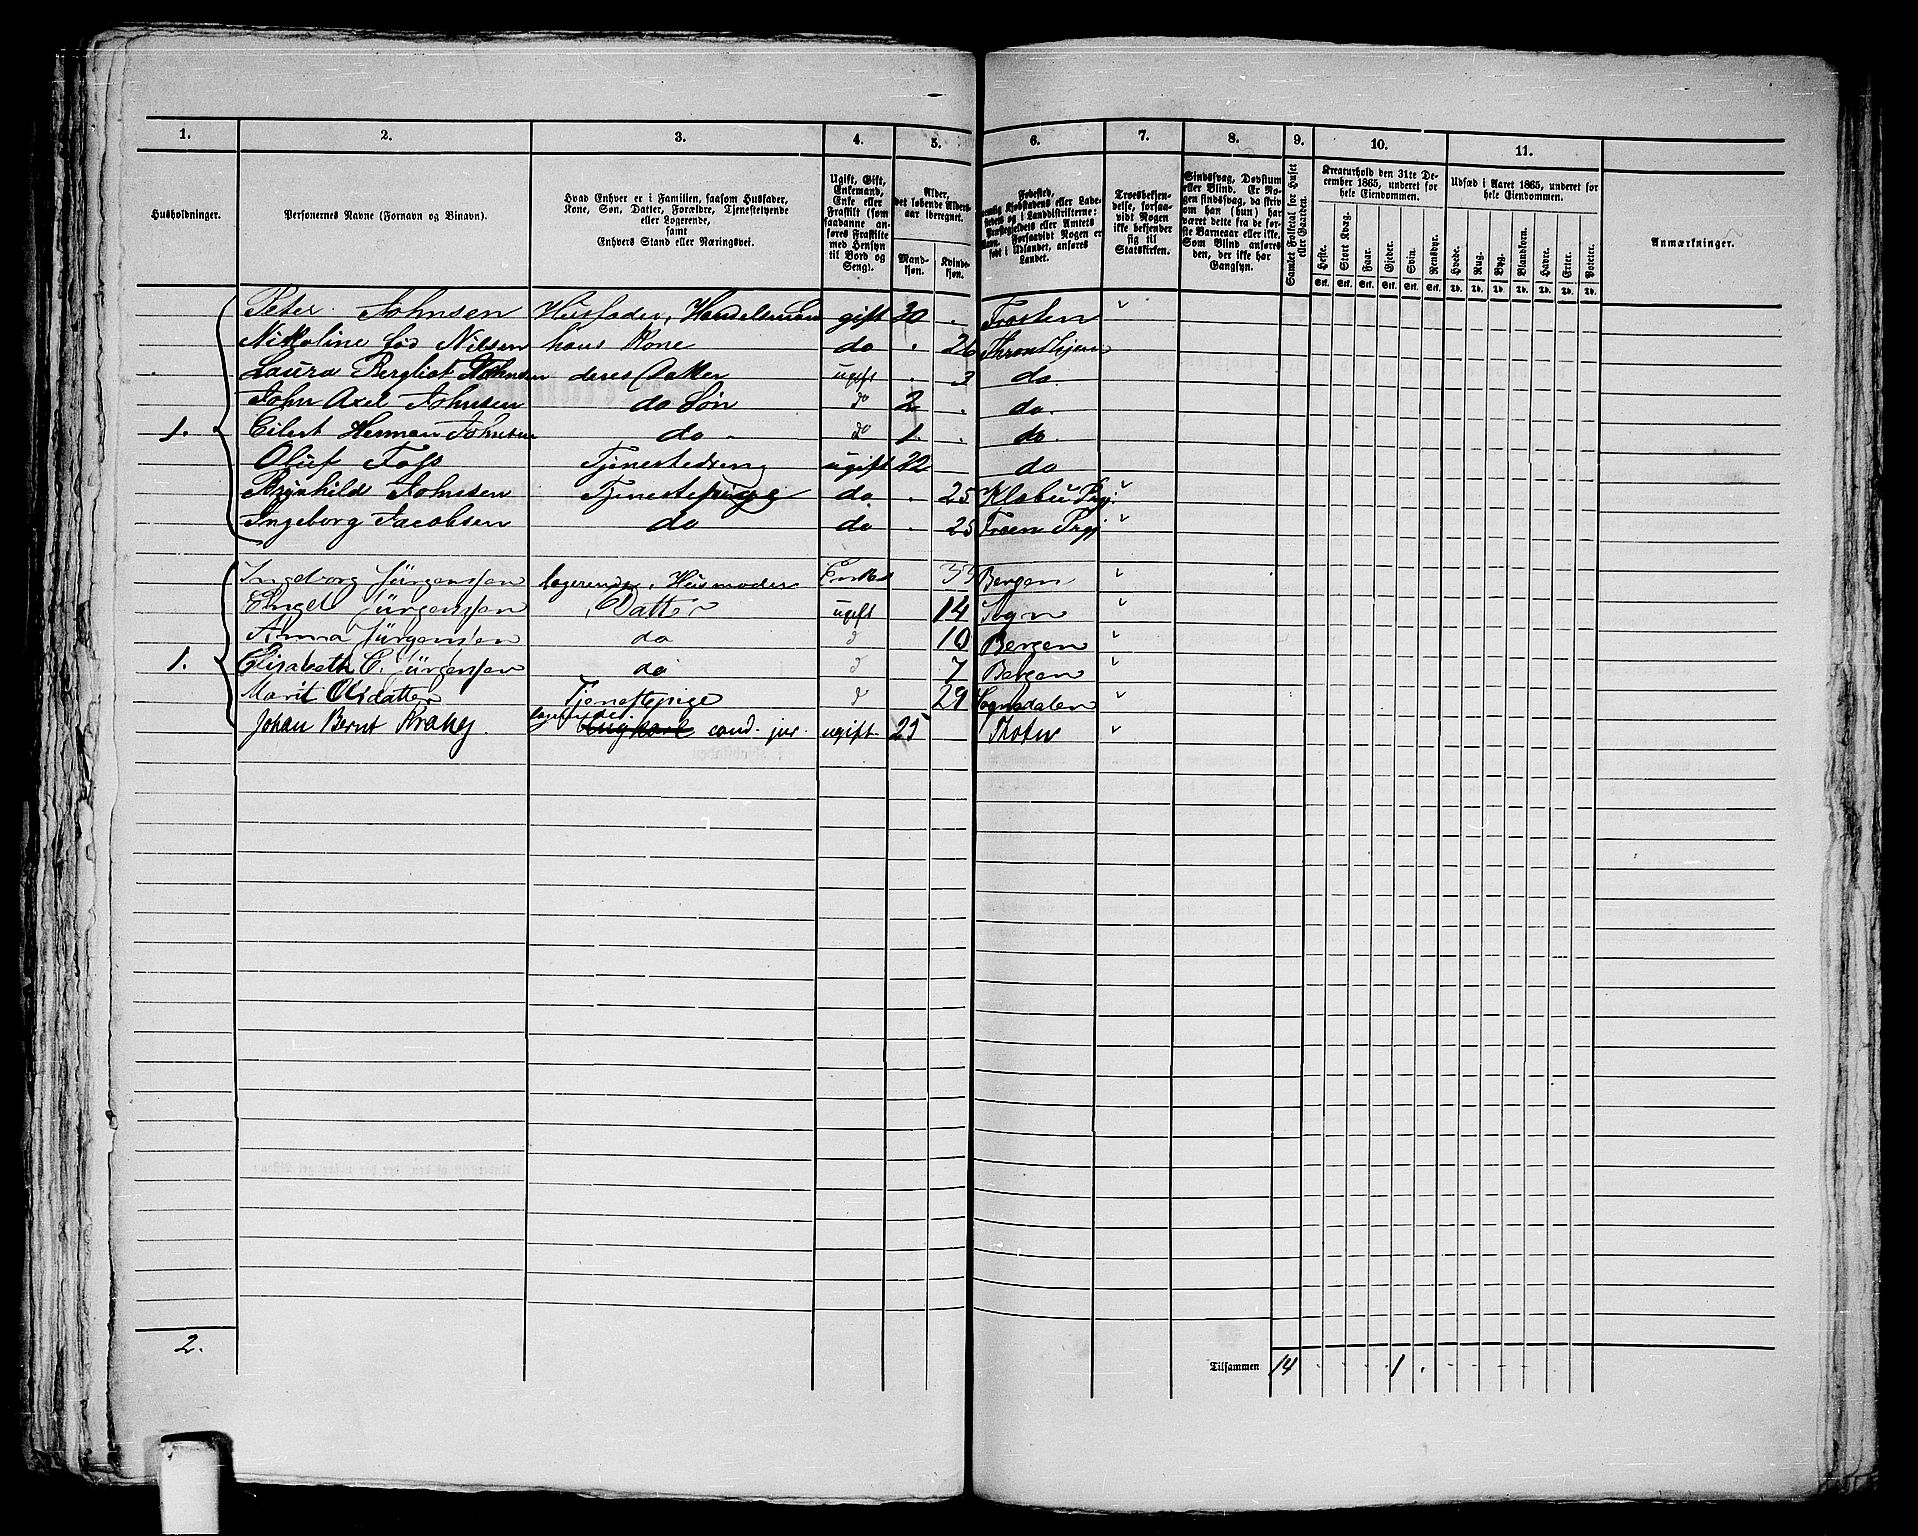 1. 2. 3. 4. 5. 6. 7. 8. 9. 10. 11.
Husholdninger.
Personernes Navne (Fornavn og Binavn).
Hvad Enhver er i Familien, saasom Husfader,
Kone, Søn, Datter, Forældre, Tjenestetyende
eller Logerende,
samt
Enhvers Stand eller Næringsvei.
Ugift, Gift,
Enkemand,
Enke eller
Fraskilt (som
saadanne an-
føres Fraskilte
med Hensyn
til Bord og
Seng).
Alder,
det løbende Alders-
aar iberegnet.
Mand-
kjøn.
Kvinde-
kjøn.
Fødested,
nemlig Kjøbstadens eller Lade-
stedets og i Landdistrikterne:
Præstegjeldets eller Amtets
Navn. Forsaavidt Nogen er
født i Udlandet, anføres
Landet.
Troesbekjen-
delse, forsaa-
vidt Nogen
ikke bekjender
sig til
Statskirken.
Sindssvag, Døvstum
eller Blind. Er No-
gen sindssvag, da skriv
om han (hun) har
været dette fra de før-
ste Barneaar eller ikke.
Som Blind anføres
den, der ikke har
Gangsyn.
Samlet Folketal for Huset
eller Gaarden.
Kreaturhold den 31te De-
cember 1865, underet for
hele Eiendommen.
Heste. Stort Kvæg. Faar. Gjeder. Svin. Rensdyr.
Stk. Stk. Stk. Stk. Stk. Stk.
Udsæd i Aaret 1865, underet for
hele Eiendommen.
Hvede. Rug. Byg. Blandkorn. Havre. Erter. Poteter.
Td. Td. Td. Td. Td. Td. Td.
Anmærkninger.
Peter Johnsen Husfader, Handelsman gift 30 Frosten
Nikoline Nilsen hans Kone do 26 Throndhjem
Laura Bergliot Johnsen deres Datter ugift 3 do
John Axel Johnsen do Søn do 2 do.
1. Eilert Herman Johnsen do do 1. do.
Oluf Foss Tjenestedreng ugift 22 do
Brynhild Johnsen Tjenestepige do 25 Klæbu Prgj.
Ingeborg Jacobsen do do 25 Prgj
Ingeborg Jürgenssen logerende, Husmoder Enke Bergen
Engel Jürgenssen Datter ugift 14 Sogn
Anna Jürgenssen do d 10 Bergen
1. Elisabeth C. Jürgenssen do d 7 Bergen
Marit Olsdatter Tjenestepige d 29 Sognsdalen
Johan Bernt Krabej. logerende cand. jur. ugift 25 Thoten
2.
Tilsammen 14 1